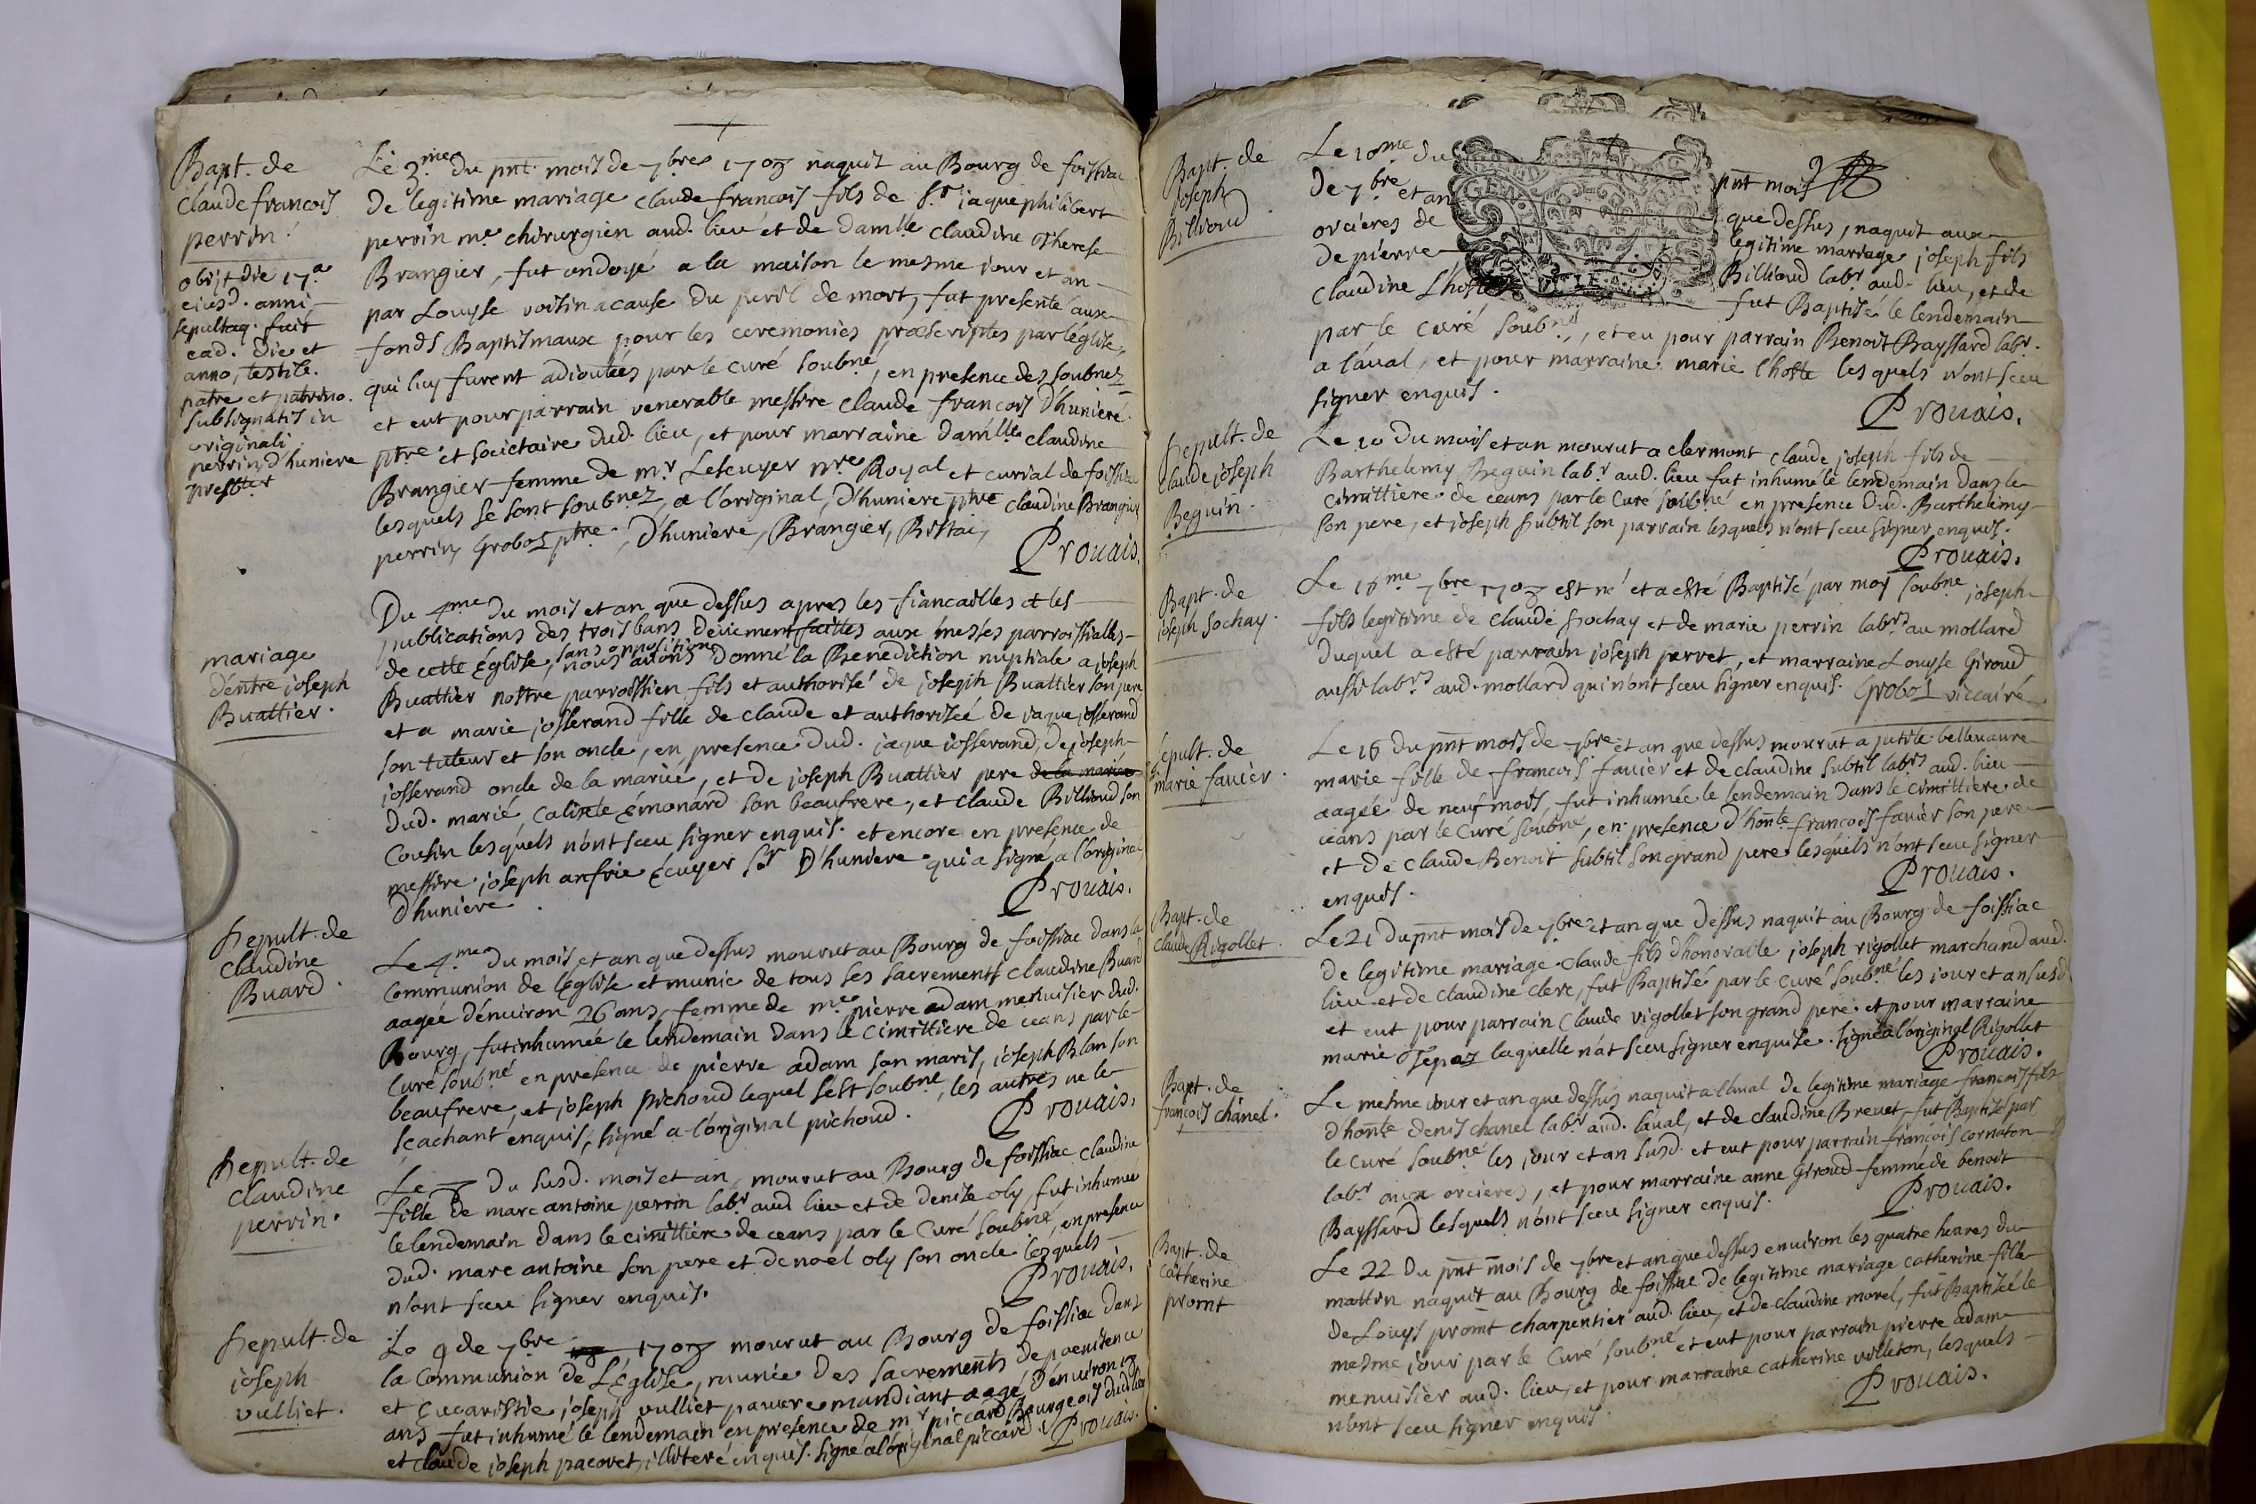 Bapt. de
Claude francois
perrin.
obijt die 17.a
eiusd. anni
sepultaq. fuit
ead. die et
anno, testib.
patre et patrino
subsignatis in
originali
perrin, d'huniere
presbter
Le 3.me du pnt. mois de 7bre 1703 naquit au Bourg de foissiac
De legitime mariage Claude francois fils de Sr jaque philibert
perrin me chirurgien aud. lieu et de damlle claudine Therese
Brangier, fut ondoyé a la maison le mesme jour et an
par Louyse voisin a cause du peril de mort, fut presenté aux
fonds Baptismaux pour les ceremonies præscriptes par l'église,
qui luy furent adioutées par le curé soubné, en presence des soubnez
et eut pour parrain venerable messire Claude francois D'huniere
ptre et societaire dud. lieu, et pour marraine damlle claudine
Brangier femme de mr Lescuyer nre Royal et curial de foissiac
lesquels se sont soubnez, a l'original, D'huniere ptre claudine Brangier
perrin, Groboz ptre, D'huniere, Brangier, Bistai,
Prouais.
mariage
d'entre joseph
Buattier.
Du 4me du mois et an que dessus apres les fiancailles et les
publications des trois bans deuement faittes aux messes parroissialles
sans opposition
de cette Église, nous auons donné la Benediction nuptiale a joseph
Buattier nostre parroissien fils et authorisé de joseph Buattier son pere
et a marie josserand fille de claude et authorisée de jaque josserand
son tuteur et son oncle, en presence dud. jaque josserand, de joseph
josserand oncle de la mariée, et de joseph Buattier pere de la mariée
dud. marié, Calixte Émonard son beaufrere, et claude Billioud son
Cousin lesquels n'ont sceu signer enquis. et encore en presence de
messire joseph anfrie Écuyer Sr D'huniere qui a signé a l'original
d'huniere.
Prouais.
Sepult. de
claudine
Buard.
Le 4.me du mois et an que dessus mourut au Bourg de foissiac dans la
Communion de l'église et munie de tous ses sacrements Claudine Buard
aagée d'enuiron 26 ans, femme de me pierre adam menuisier dud.
Bourg, fut inhumée le lendemain dans le Cimittiere de ceans par le
Curé soubné en presence de pierre adam son maris, joseph Blan son
beaufrere, et joseph pichoud lequel s'est soubné, les autres ne le
scachant enquis, signé a l'original pichoud.
Prouais.
Sepult. de
claudine
perrin.
Le 7 du susd. mois et an, mourut au Bourg de foissiac claudine
fille de marc antoine perrin labr aud lieu et de denise oly, fut inhumée
le lendemain dans le cimittiere de ceans par le Curé soubné, en presence
dud. marc antoine son pere et de noel oly son oncle lesquels
n'ont sceu signer enquis.
Prouais.
Sepult. de
joseph
vulliet.
Le 9 de 7bre 1703 mourut au Bourg de foissiac dans
la Communion de L'Église, munie des sacrements de pænitence
et Eucaristie joseph vulliet pauvre mandiant aagé d'enuiron 13
ans fut inhumé le lendemain en presence de mr piccard Bourgeois dud. lieu
et claude joseph pacoret, illiteré enquis. signé a l'original piccard.
Prouais.
Bapt. de
joseph
Billioud
Le 10me du pnt mois
de 7bre et an que dessus, naquit aux
orcieres de legitime mariage joseph fils
de pierre Billioud labr aud. lieu, et de
claudine Lhoste fut Baptisé le lendemain
par le curé soubné, et eu pour parrain Benoit Bayssard labr.
a laual, et pour marraine marie Lhoste lesquels n'ont sceu
signer enquis.
Prouais.
Sepult. de
claude joseph
Beguin.
Le 10 du mois et an mourut a clermont claude joseph fils de
Barthelemy Beguin labr aud. lieu fut inhumé le lendemain dans le
cimittiere de ceans par le Curé soubné en presence dud. Barthelemy
son pere, et joseph subtil son parrain lesquels n'ont sceu signer enquis.
Prouais.
Bapt. de
joseph Sochay.
Le 16me 7bre 1703 est né et a esté Baptisé par moy soubné joseph
fils legitime de claude Sochay et de marie perrin labrs au mollard
duquel a esté parrain joseph perret, et marraine Louyse Giroud
aussi labrs aud. mollard qui n'ont sceu signer enquis. Groboz viccaire
Sepult. de
marie fauier.
Le 16 du pnt mois de 7bre et an que dessus mourut a jutile belleuaure
marie fille de francois fauier et de claudine subtil labrs aud. lieu
aagée de neuf mois, fut inhumée le lendemain dans le cimittiere de
ceans par le Curé soubné, en presence d'honte francois fauier son pere
et de claude Benoit subtil son grand pere lesquels n'ont sceu signer
enquis.
Prouais.
Bapt. de
claude Rigollet.
Le 21 du pnt mois de 7bre et an que dessus naquit au Bourg de foissiac
de legitime mariage claude fils d'honorable joseph rigollet marchand aud.
lieu et de claudine clerc, fut Baptisé par le curé soubné les jour et an susd.
et eut pour parrain Claude rigollet son grand pere et pour marraine
marie Tepaz laquelle n'at sceu signer enquise. signé a l'original Rigollet
Prouais.
Bapt. de
francois chanel.
Le mesme jour et an que dessus naquit a laual de legitime mariage francois fils
d'honte denis chanel labr aud. laual, et de claudine Breuet, fut Baptisé par
le curé soubné les jour et an susd. et eut pour parrain francois cornaton
labr aux orcieres, et pour marraine anne Giroud femme de benoit
Bayssard lesquels n'ont sceu signer enquis.
Prouais.
Bapt. de
catherine
promt
Le 22 du pnt mois de 7bre et an que dessus enuiron les quatre heures du
mattin naquit au Bourg de foissiac de legitime mariage catherine fille
de Louys promt charpentier aud. lieu, et de claudine morel, fut Baptisée le
mesme jour par le Curé soubné et eut pour parrain pierre adam
menuisier aud. lieu, et pour marraine catherine vulleton, lesquels
n'ont sceu signer enquis.
Prouais.